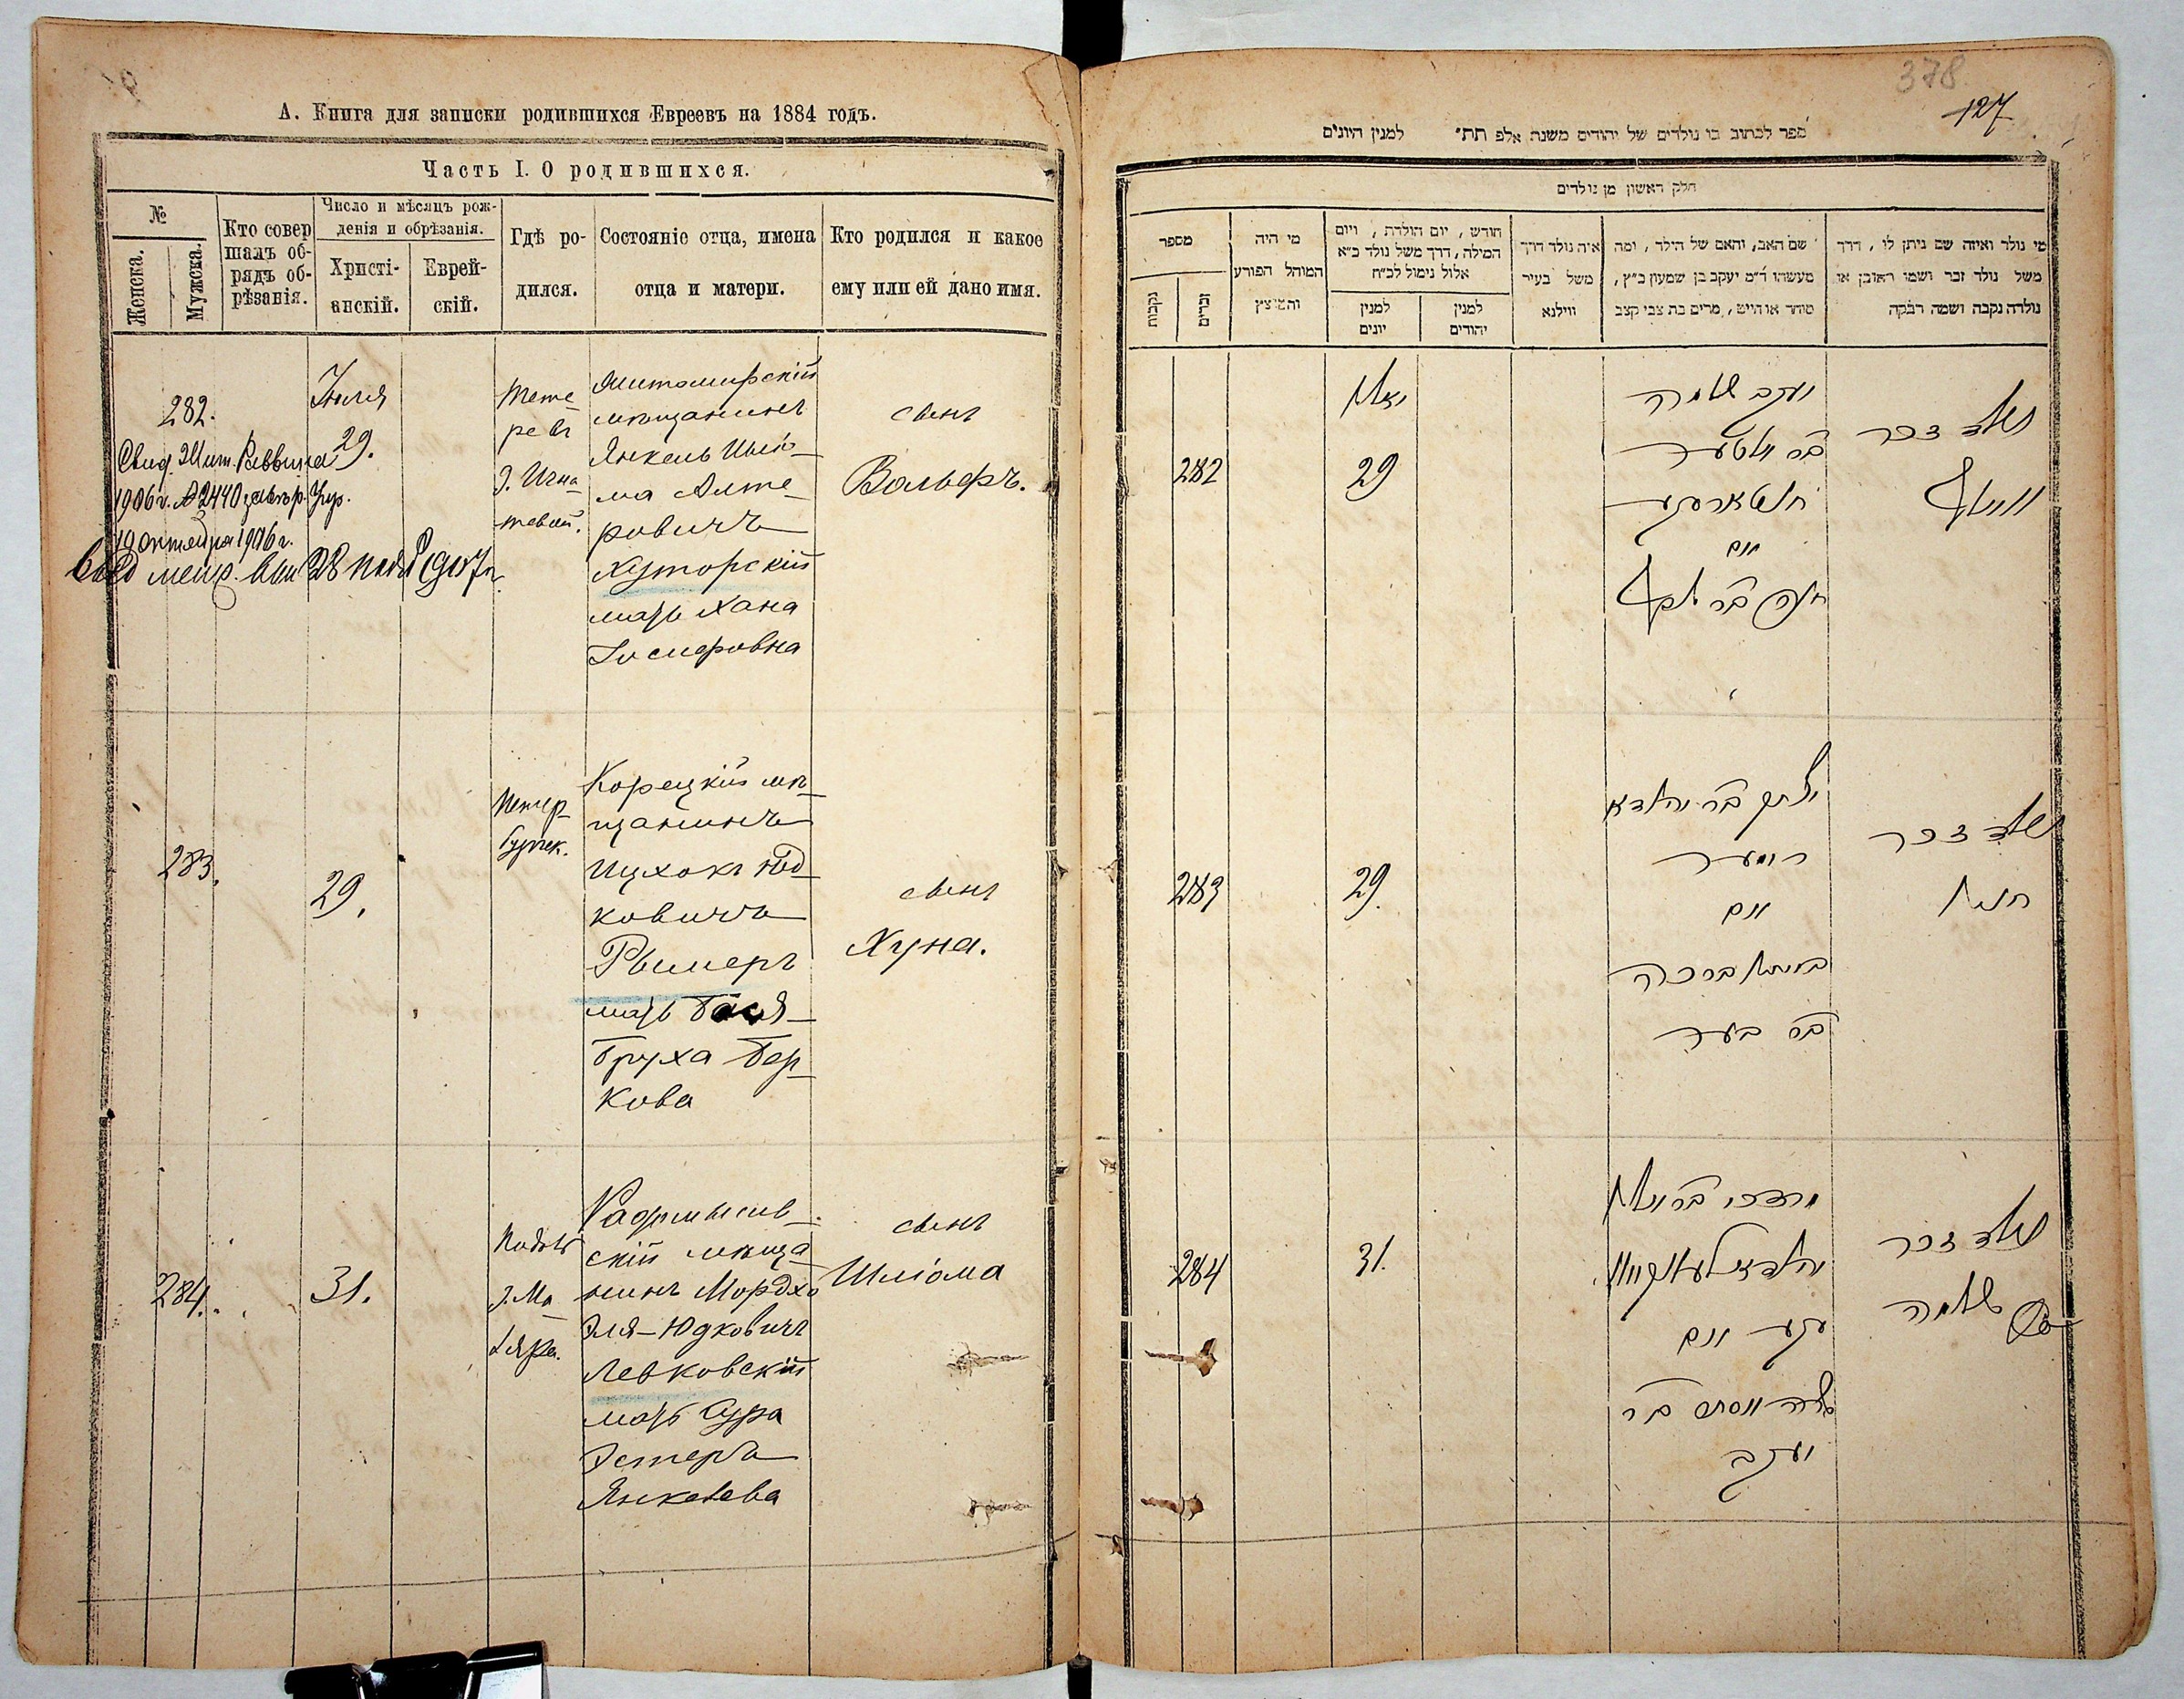 А. Книга для записки родившихся Евреевъ на 1884 годъ.
Часть I. О родившихся.
№
Женска.
Мужска.
Кто совер
шалъ об-
рядъ об-
рѣзанія.
Число и мѣсяцъ рож-
денія и обрѣзанія.
Христі-
анскій.
Еврей-
скій.
Гдѣ ро-
дился.
Состояніе отца, имена
отца и матери.
Кто родился и какое
ему или ей дано имя.
282.
Свид. Жит. Раввина
1906 г. № 2440
19 октября 1906 г.
28 1907 г.
Іюля
29.
Тете
ревъ
Житомирскій
мѣщанинъ
Янкель Шліо-
ма Алте-
ровичъ
Хуторскій
мать Хана
Іосифовна
сынъ
Вольфъ.
283.
29.
Корецкій мѣ-
щанинъ
Ицхокъ Юд-
ковичъ
Рымеръ
мать Бася-
Бруха Бер-
кова
сынъ
Хуна.
284.
31.
Радомысль-
скій мѣща
нинъ Мордхо
Эля-Юдковичъ
Левковскій
мать Сура
Эстеръ
Янкелева
сынъ
Шліома
378
127
ספר לכתוב בו נולדים של יהודים משנה אלפ תת״ למנין היונים
חלק ראשון מן נולדים
מספר
נקבות
זכרים
מי היה
המוהל הפורע
והמוצץ
חודש, יום הולדת, ויום
המילה, דרך משל נולד כ״א
אלול נימול לכ״ח
למנין
יונים
למנין
יהודים
איה נולד דרך
משל בעיר
ווילנא
שם האב, והאם של הילד, ומה
מעשהו ד״מ יעקב בן שמעון כ״ץ,
סוחר או חייט, מרים בת צבי קצב
מי נולד ואיזה שם ניתן לו, דרך
משל נולד זכר ושמו ראובן או
נולדה נקבה ושמה רבקה
282
יולי
29
יעקב שלמה
בר אלטער
חוטארסקע
ואם
נולד זכר
וואלף
283
29.
יצחק בר יהודא
רימער
ואם
באסיא ברכה
בר בער
נולד זכר
חונא
284
31.
מרדכי
ואם
שרה אסתר בר
יעקב
נולד זכר
שלמה